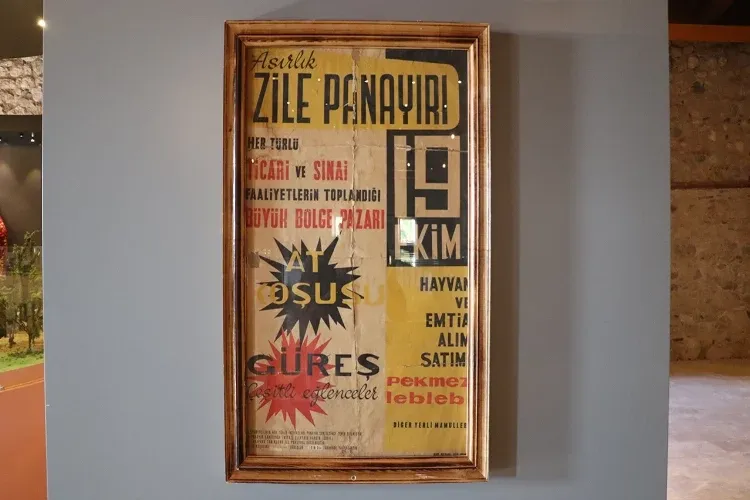 Asırlık
ZİLE PANAYIRI
HER TÜRLÜ
TİCARİ VE SINAİ
FAALİYETLERİN TOPLANDIĞI
BÜYÜK BÖLGE PAZARI
19
EKİM
AT
KOŞUSU
GÜREŞ
Çeşitli eğlenceler
HAYVAN
VE
EMTİA
ALIM
SATIM
Pekmez
lebleb
DİĞER YERLİ MAMÜLLER